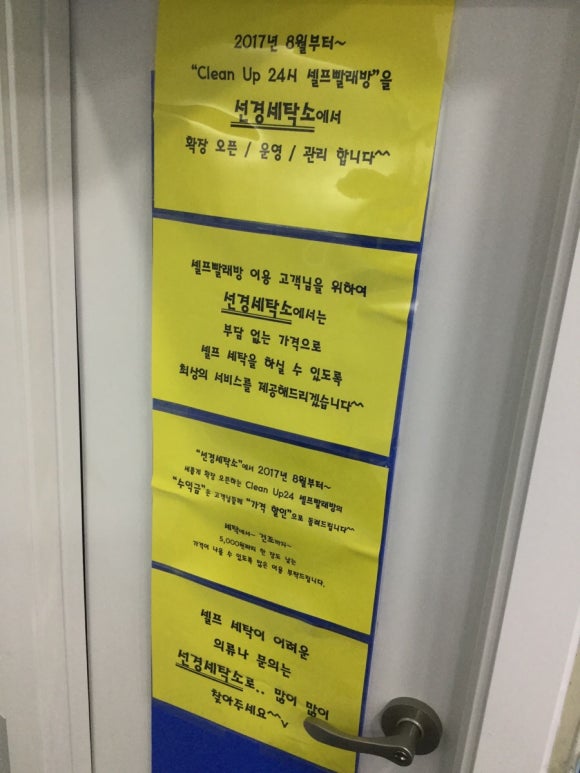 2017년 8월부터~
"Clean Up 24시 셀프빨래방"을
선경세탁소에서
확장 오픈 / 운영 / 관리 합니다^^
셀프빨래방 이용 고객님을 위하여
선경세탁소에서는
부담 없는 가격으로
셀프 세탁을 하실 수 있도록
최상의 서비스를 제공해드리겠습니다^^
"선경세탁소"에서 2017년 8월부터~
새롭게 확장 오픈하는 Clean Up24 셀프빨래방의
"수익금"은 고객님들께 "가격 할인"으로 돌려드립니다^^
세탁에서~ 건조까지~
5,000원짜리 한 장도 남는
가격이 나올 수 있도록 많은 이용 부탁드립니다.
셀프 세탁이 어려운
의류나 문의는
선경세탁소로.. 많이 많이
찾아주세요^^v